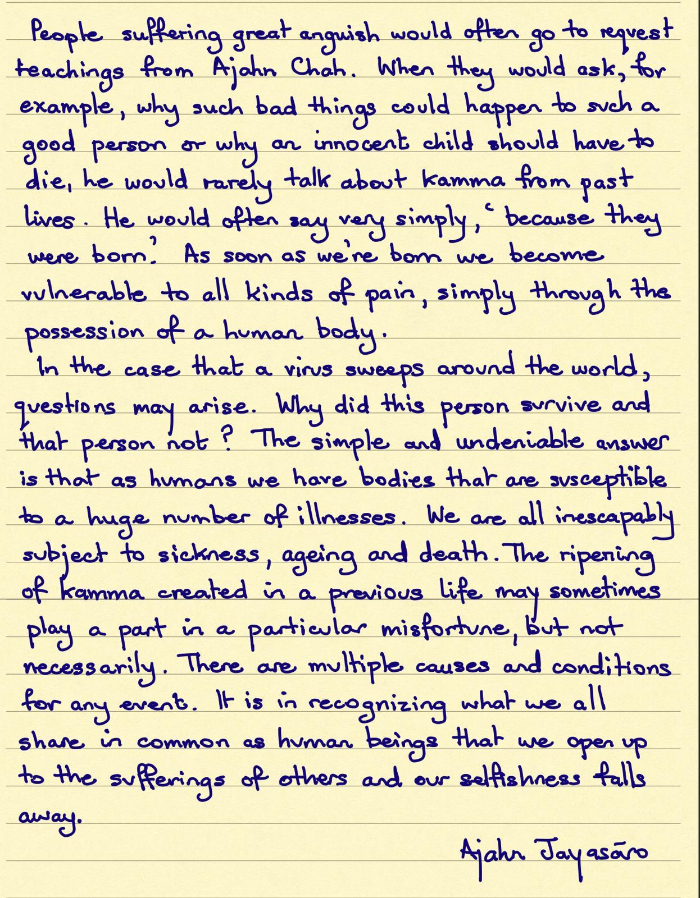 People suffering great anguish would often go to request
teachings from Ajahn Chah. When they would ask, for
example, why such bad things could happen to such a
good person or why an innocent child should have to
die, he would rarely talk about kamma from past
lives. He would often say very simply, ‘because they
were born’. As soon as we're born we become
vulnerable to all kinds of pain, simply through the
possession of a human body.
In the case that a virus sweeps around the world,
questions may arise. Why did this person survive and
that person not? The simple and undeniable answer
is that as humans we have bodies that are susceptible
to a huge number of illnesses. We are all inescapably
subject to sickness, ageing and death. The ripening
of kamma created in a previous life may sometimes
play a part in a particular misfortune, but not
necessarily. There are multiple causes and conditions
for any event. It is in recognizing what we all
share in common as human beings that we open up
to the sufferings of others and our selfishness falls
away.
Ajahn Jayasāro